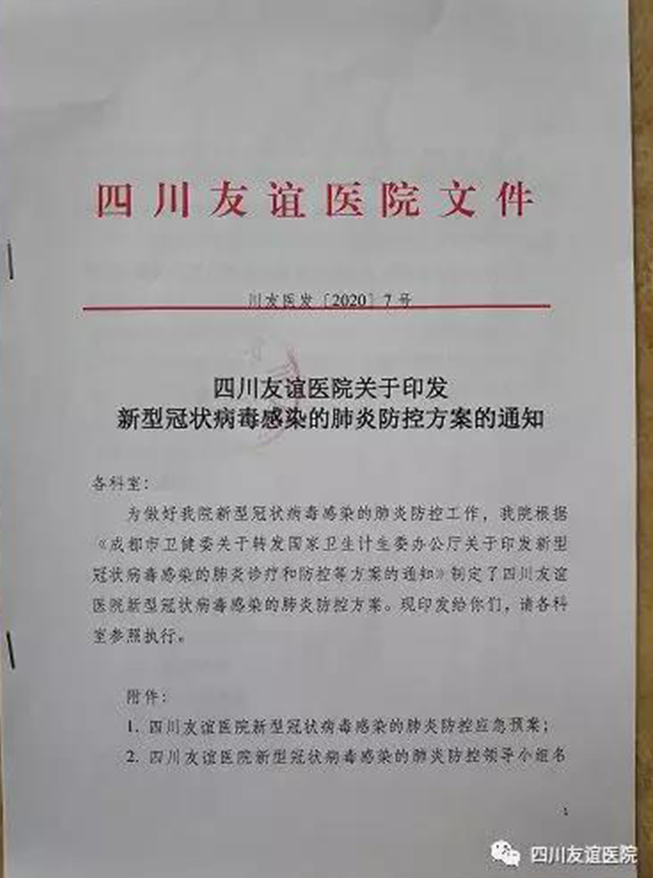 四川友谊医院文件
川友医发〔2020〕7号
四川友谊医院关于印发
新型冠状病毒感染的肺炎防控方案的通知
各科室：
为做好我院新型冠状病毒感染的肺炎防控工作，我院根据
《成都市卫健委关于转发国家卫生计生委办公厅关于印发新型
冠状病毒感染的肺炎诊疗和防控等方案的通知》制定了四川友谊
医院新型冠状病毒感染的肺炎防控方案。现印发给你们，请各科
室参照执行。
附件：
1. 四川友谊医院新型冠状病毒感染的肺炎防控应急预案；
2. 四川友谊医院新型冠状病毒感染的肺炎防控领导小组名
1
四川友谊医院